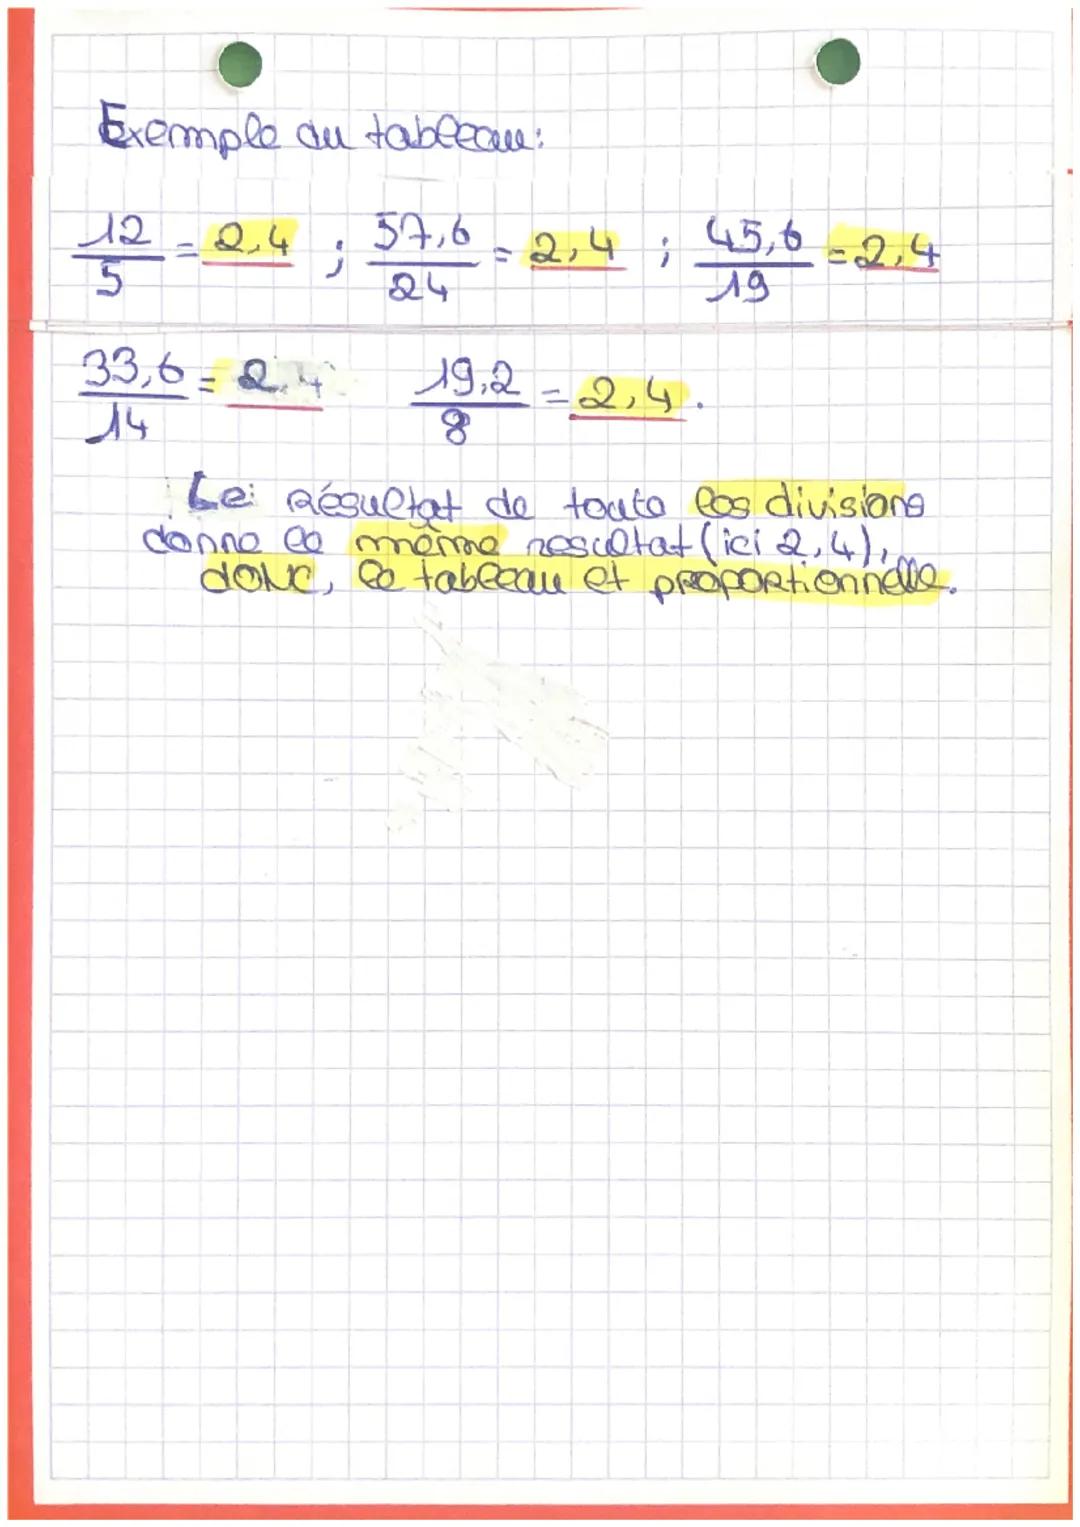 Exemple du tableau:
12/5 = 2,4 ; 57,6/24 = 2,4 ; 45,6/19 = 2,4
33,6/14 = 2,4 19,2/8 = 2,4.
Le résultat de toute les divisions
donne le même resultat (ici 2,4),
donc, le tableau et proportionnelle.